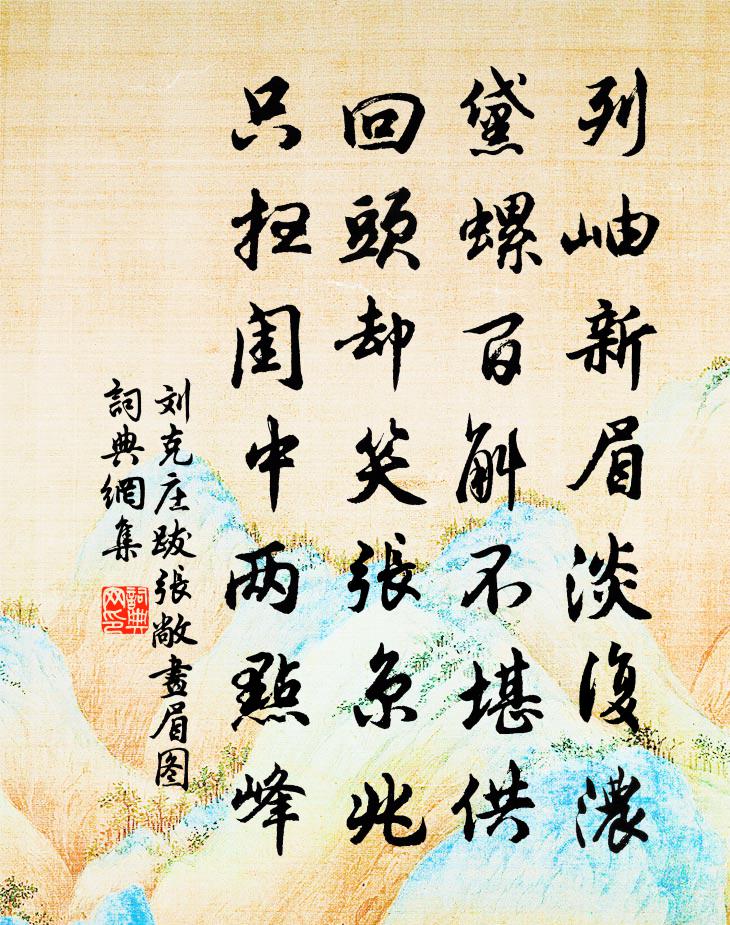 列岫新眉淡復濃
黛螺百斛不堪供
回頭却笑張京兆
只掃閨中两點峰
刘克庄跋張敞畫眉图
詞典網集
詞典
网印